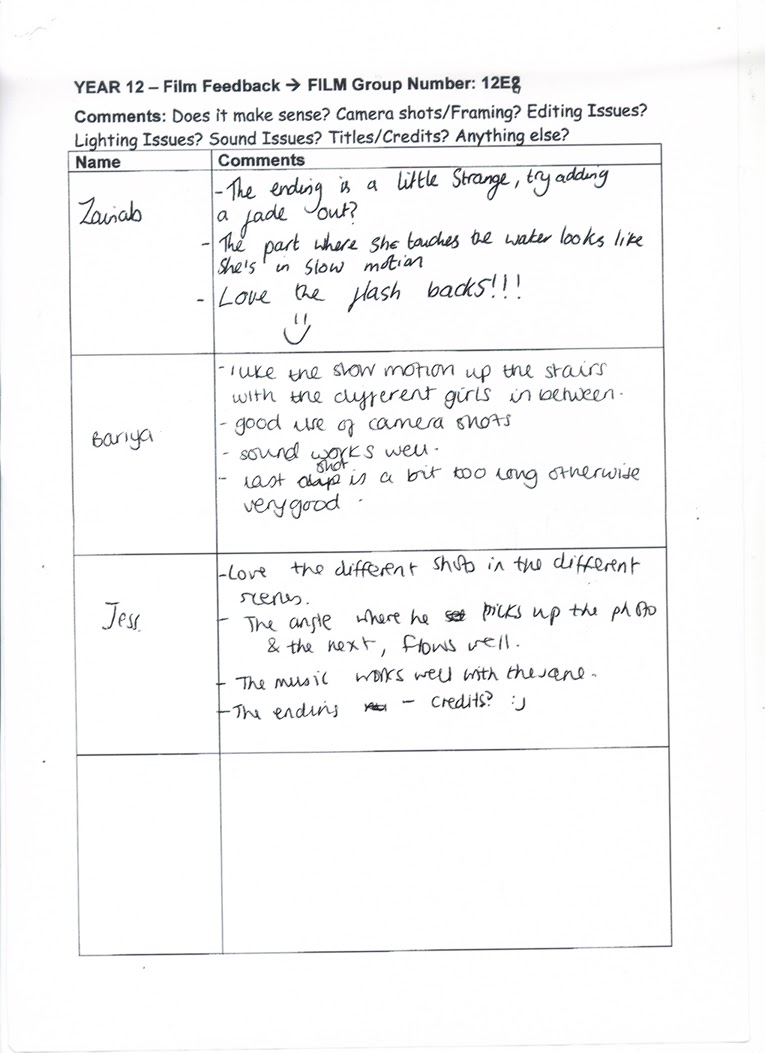 YEAR 12 – Film Feedback → FILM Group Number: 12Eg
Comments: Does it make sense? Camera shots/Framing? Editing Issues?
Lighting Issues? Sound Issues? Titles/Credits? Anything else?
Name Comments
Zainab
- The ending is a little Strange, try adding
a fade out?
- The part where She touches the water looks like
She's in slow motion
- Love the flash backs!!!
Bariya
- I like the slow motion up the stairs
with the different girls in between.
- good use of camera shots
- sound works well.
- last shot is a bit too long otherwise
very good.
Jess
- Love the different shots in the different
scenes.
- The angle where he picks up the photo
& the next, flows well.
- The music works well with the
- The ending – credits? :)